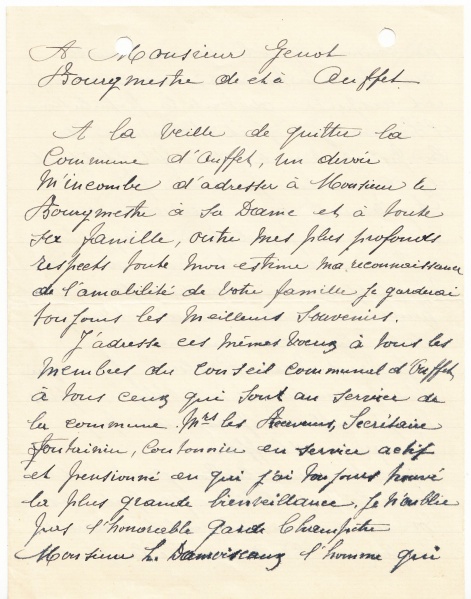 A Monsieur Genot
Bourgmestre de et à Ouffet.
A la veille de quitter la
Commune d'Ouffet, un devoir
m'incombe d'adresser à Monsieur le
Bourgmestre à sa Dame et à toute
sa famille, outre mes plus profonds
respects toute mon estime ma reconnaissance
de l'amabilité de votre famille je garderai
toujours les meilleurs souvenirs.
J'adresse ces mêmes voeux à tous les
membres du conseil communal d'Ouffet,
à tous ceux qui sont au service de
la commune. Mrs les Receveurs, Secrétaire
Fontainier, Cantonnier en service actif
et pensionné en qui j'ai toujours trouvé
la plus grande bienveillance. Je n'oublie
pas l'honorable garde Champêtre
Monsieur L. Damoiseaux l'homme qui